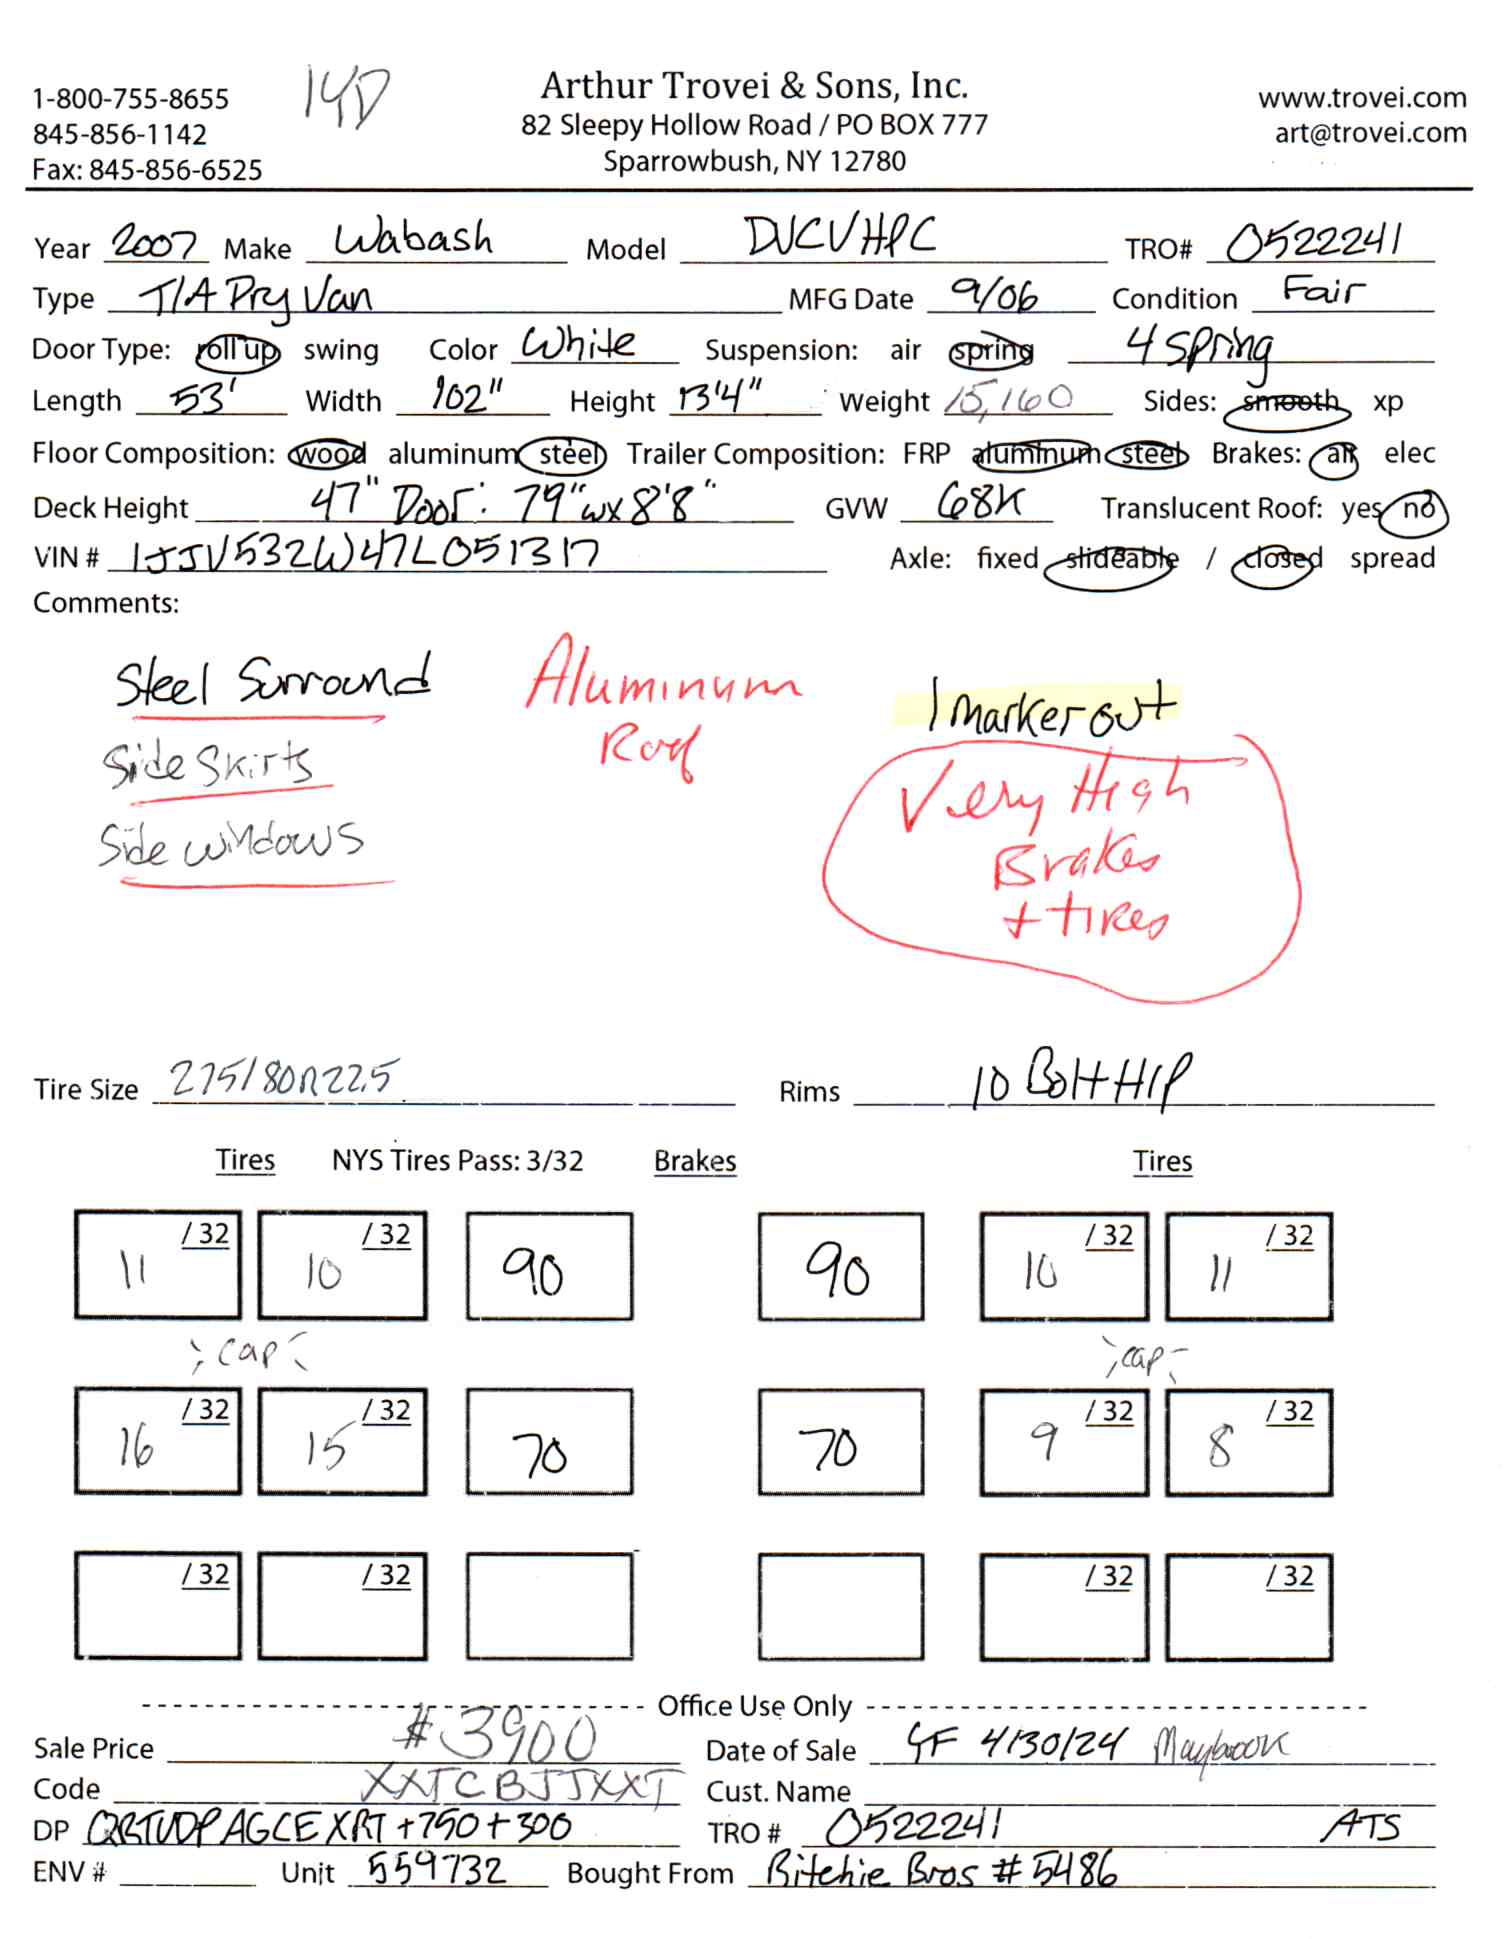 1-800-755-8655
845-856-1142
Fax: 845-856-6525
14D
Arthur Trovei & Sons, Inc.
82 Sleepy Hollow Road / PO BOX 777
Sparrowbush, NY 12780
www.trovei.com
art@trovei.com
Year 2007 Make Wabash Model DVCVHPC TRO# 0522241
Type T/A Dry Van MFG Date 9/06 Condition Fair
Door Type: roll up swing Color White Suspension: air spring 4 Spring
Length 53' Width 102" Height 13'4" Weight 15,160 Sides: smooth xp
Floor Composition: wood aluminum steel Trailer Composition: FRP aluminum steel Brakes: air elec
Deck Height 47" Door: 79"w x 8'8" GVW 68K Translucent Roof: yes no
VIN # 1JJV532W47L051317 Axle: fixed slideable / closed spread
Comments:
Steel Surround
Side Skirts
Side windows
Aluminum
Roof
1 marker out
Very High
Brakes
+ tires
Tire Size 275/80R22.5 Rims 10 Bolt H/P
Tires NYS Tires Pass: 3/32 Brakes Tires
11 /32 10 /32 90 90 10 /32 11 /32
cap cap
16 /32 15 /32 70 70 9 /32 8 /32
/32 /32 /32 /32
Office Use Only
Sale Price #3900 Date of Sale GF 4/30/24 Maybrook
Code XXTCBJJXXT Cust. Name
DP QRTUDPAGCEXRT +750+300 TRO # 0522241 ATS
ENV # Unit 559732 Bought From Ritchie Bros # 5486